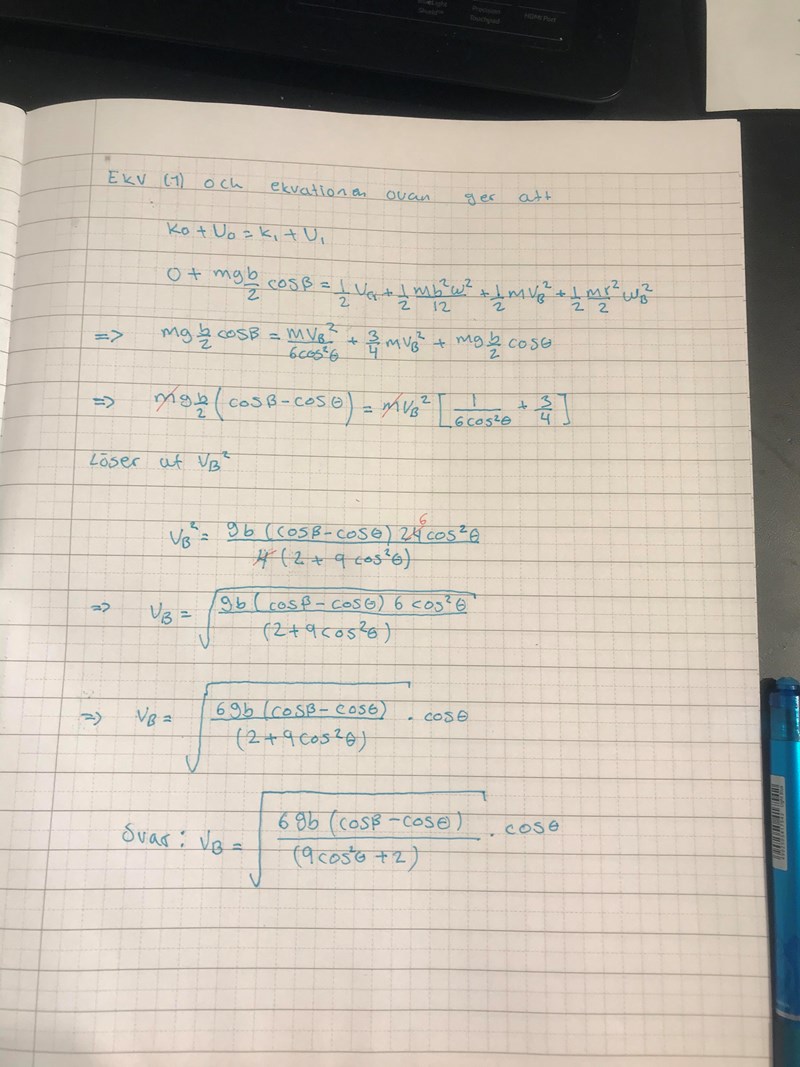 Precision
Touchpad
HDMI Port
EKV (1) och ekvationen ovan ger att
K0 + U0 = K1 + U1
0 + mg b/2 cosβ = 1/2 VG + 1/2 mb²ω²/12 + 1/2 mVB² + 1/2 mr²/2 ωB²
=> mg b/2 cosβ = mVB²/6cos²θ + 3/4 mVB² + mg b/2 cosθ
=> mg b/2 (cosβ - cosθ) = mVB² [1/6cos²θ + 3/4]
Löser ut VB²
VB² = gb (cosβ - cosθ) 24 6 cos²θ / 4 (2 + 9 cos²θ)
=> VB = √(gb (cosβ - cosθ) 6 cos²θ / (2 + 9cos²θ))
=> VB = √(6gb (cosβ - cosθ) / (2 + 9cos²θ)) · cosθ
Svar: VB = √(6gb (cosβ - cosθ) / (9cos²θ + 2)) · cosθ